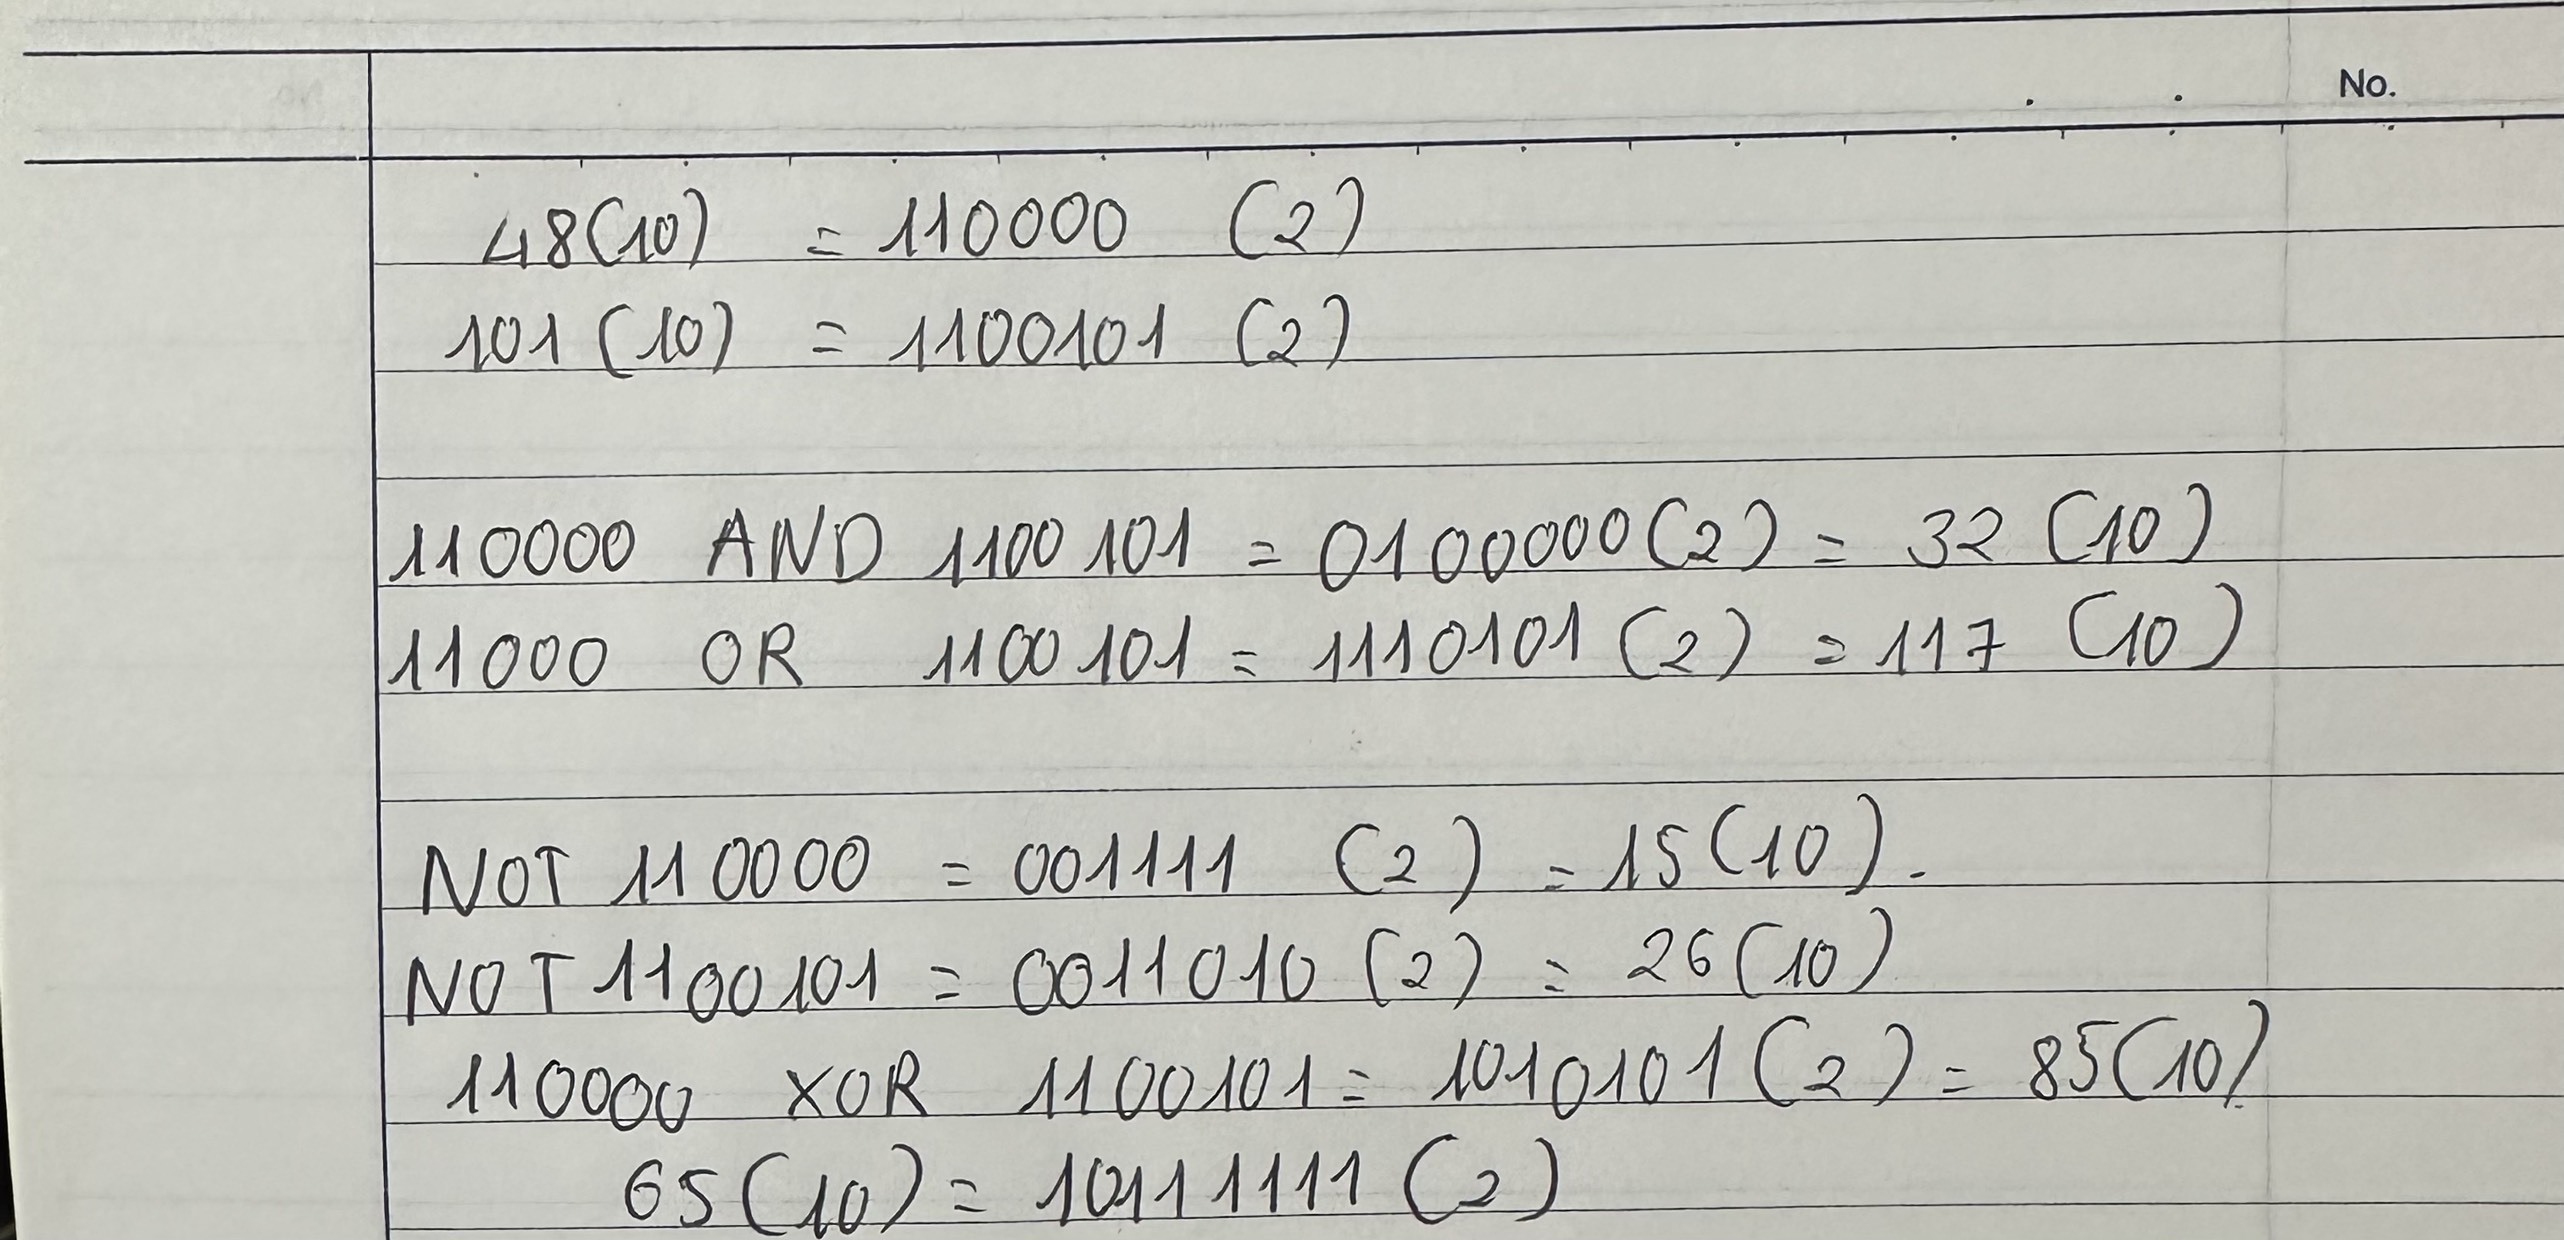 No.
48(10) = 110000 (2)
101 (10) = 1100101 (2)
110000 AND 1100101 = 0100000(2) = 32 (10)
11000 OR 1100101 = 1110101 (2) = 117 (10)
NOT 110000 = 001111 (2) = 15(10).
NOT 1100101 = 0011010 (2) = 26(10)
110000 XOR 1100101 = 1010101 (2) = 85(10)
65(10) = 10111111 (2)